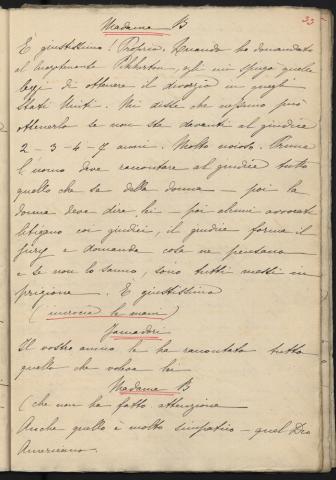 23
Madame B
È giustissimo! Proprio. Quando ho domandato
al luogotenente Pikherton, egli mi spiegò quelle
leggi di ottenere il divorzio in quegli
Stati Uniti. Mi disse che nessuno può
ottenerlo se non sta davanti al giudice
2 - 3 - 4 - 7 anni. Molto noioso. Prima
l'uomo deve raccontare al giudice tutto
quello che sa della donna — poi la
donna deve dire, lei — poi alcuni avvocati
litigano coi giudici, il giudice forma il
jury e domanda cosa ne pensano
e se non lo sanno, sono tutti messi in
prigione. È giustissimo
(incrocia le mani)
Yamadori
Il vostro amico le ha raccontato tutto
quello che voleva lei
Madame B
(che non ha fatto attenzione
Anche quello è molto simpatico — quel Dio
Americano.